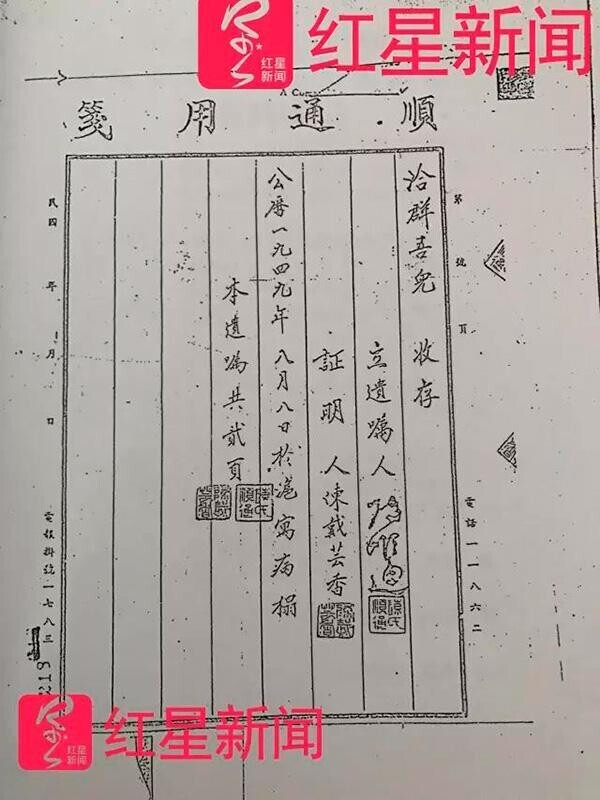 红星新闻
红星新闻
順通用箋
第 號 頁
洽群吾兒 收存
立遺嘱人
証明人陳戴芸香
公厯一九四九年八月八日於滬寓病榻
本遺嘱共贰頁
民四 年 月 日
電話一一八六二
電報掛號一七八三
218
红星新闻
红星新闻